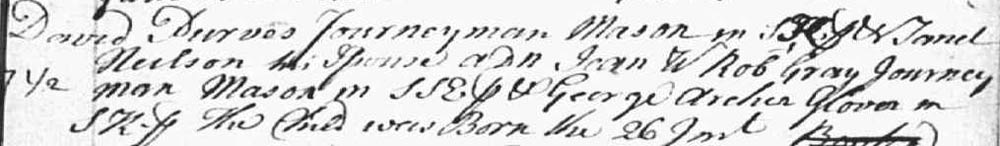 David Purves Journeyman Mason in S K p & Janet
Neilson his Spouse a D n Jean W Rob Gray Journey
7 1/2 man Mason in S S E p & George Archer Glover in
S K p The Child was Born the 26 Inst